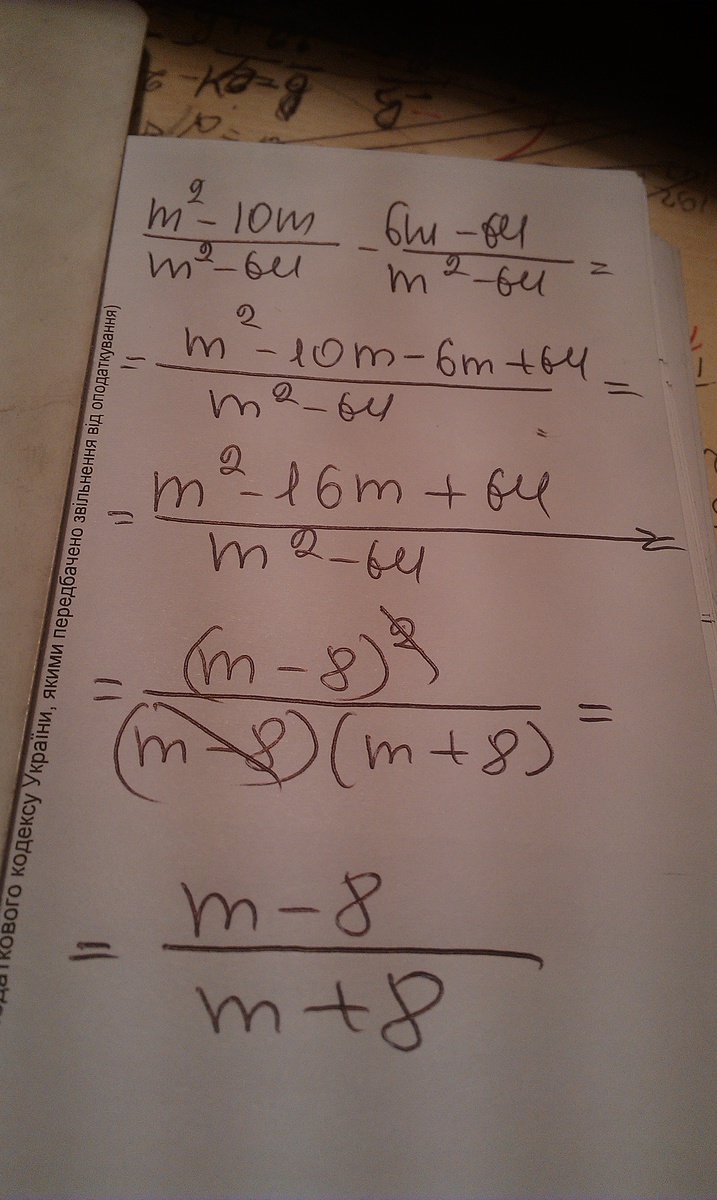 (m² - 10m)/(m² - 64) - (6m - 64)/(m² - 64) =
= (m² - 10m - 6m + 64)/(m² - 64) =
= (m² - 16m + 64)/(m² - 64) =
= (m - 8)²/((m - 8)(m + 8)) =
= (m - 8)/(m + 8)
кодексу України, якими передбачено звільнення від оподаткування)